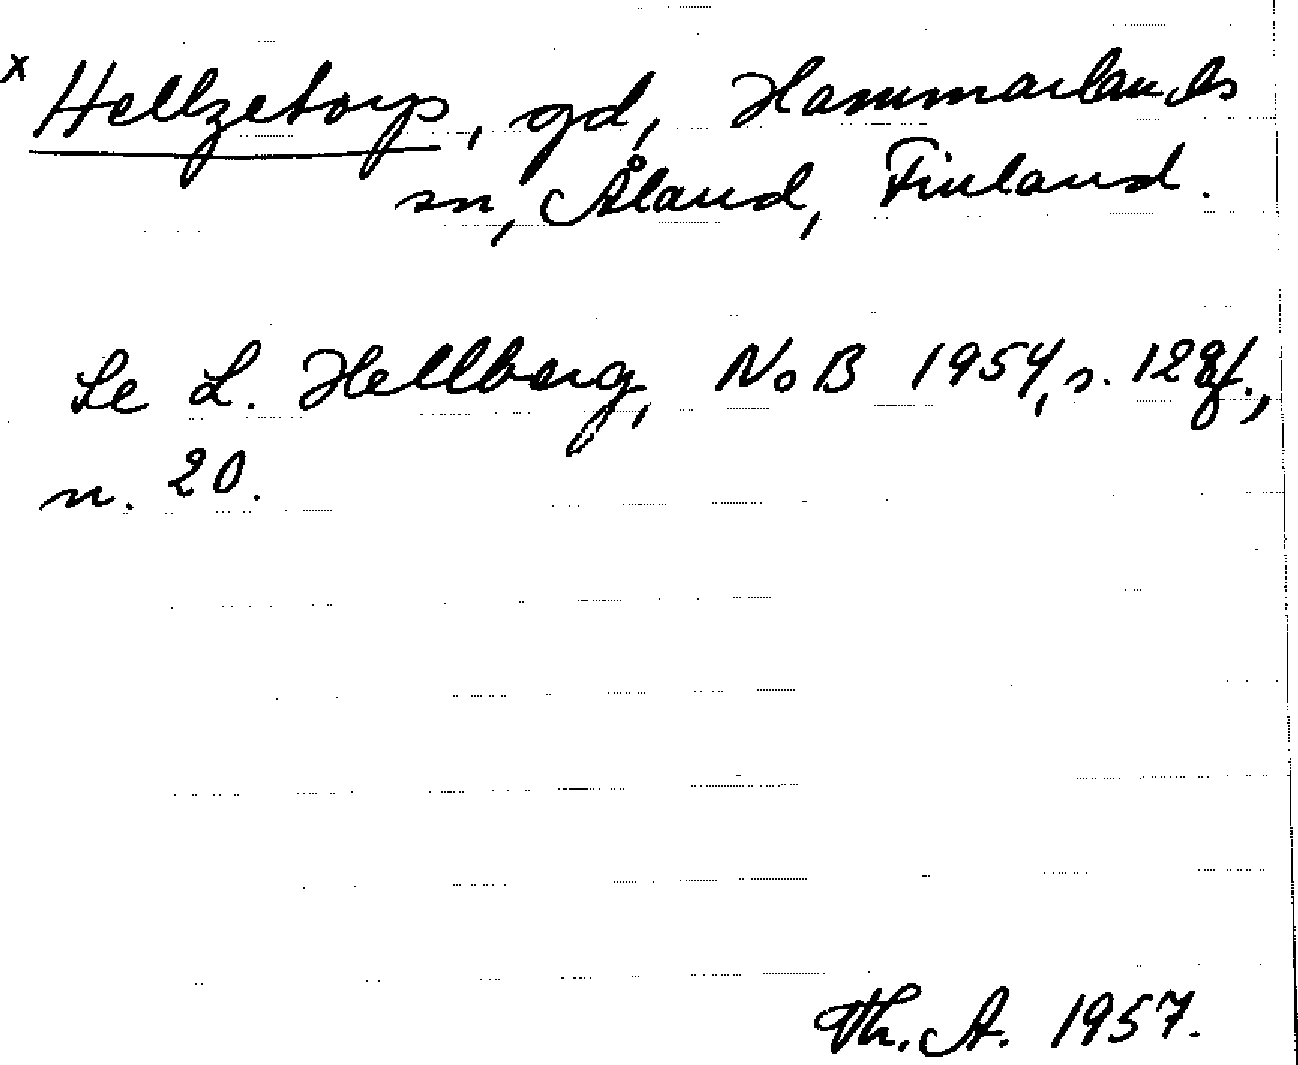 x Hellzetorp, gd, Hammarlands
sn, Åland, Finland.
Se L. Hellberg, NoB 1954, s. 128f.,
n. 20.
Th. A. 1957.